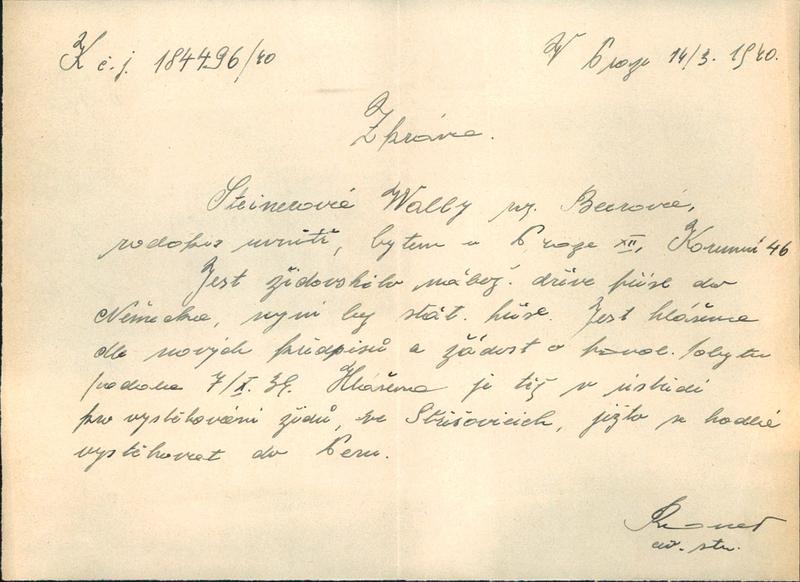 K č.j. 184496/40
V Praze 14/3. 1940.
Zpráva.
Steinerová Wally roz. Beerová,
rodopis uvnitř, bytem v Praze XII, Korunní 46
Jest židovského nábož. dříve přísl. do
Německa, nyní bez stát. přísl. Jest hlášena
dle nových předpisů a žádost o povol. pobytu
podala 7/X. 39. Hlášena je též v ústředí
pro vystěhování židů, ve Střešovicích, ježto se hodlá
vystěhovat do Peru.
str.